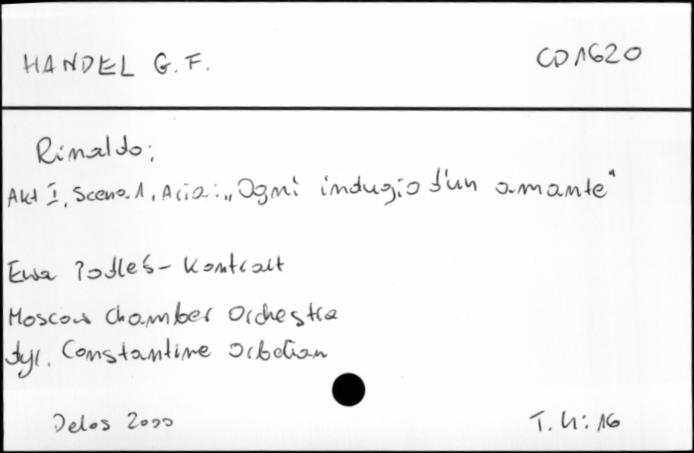 HANDEL G.F.
CD1620
Rinaldo;
Akt I, Scena 1, Aria: „Ogni indugio d'un amante"
Ewa Podleś - Kontralt
Moscow Chamber Orchestra
dyr. Constantine Orbelian
Delos 2000
T. 4: 16